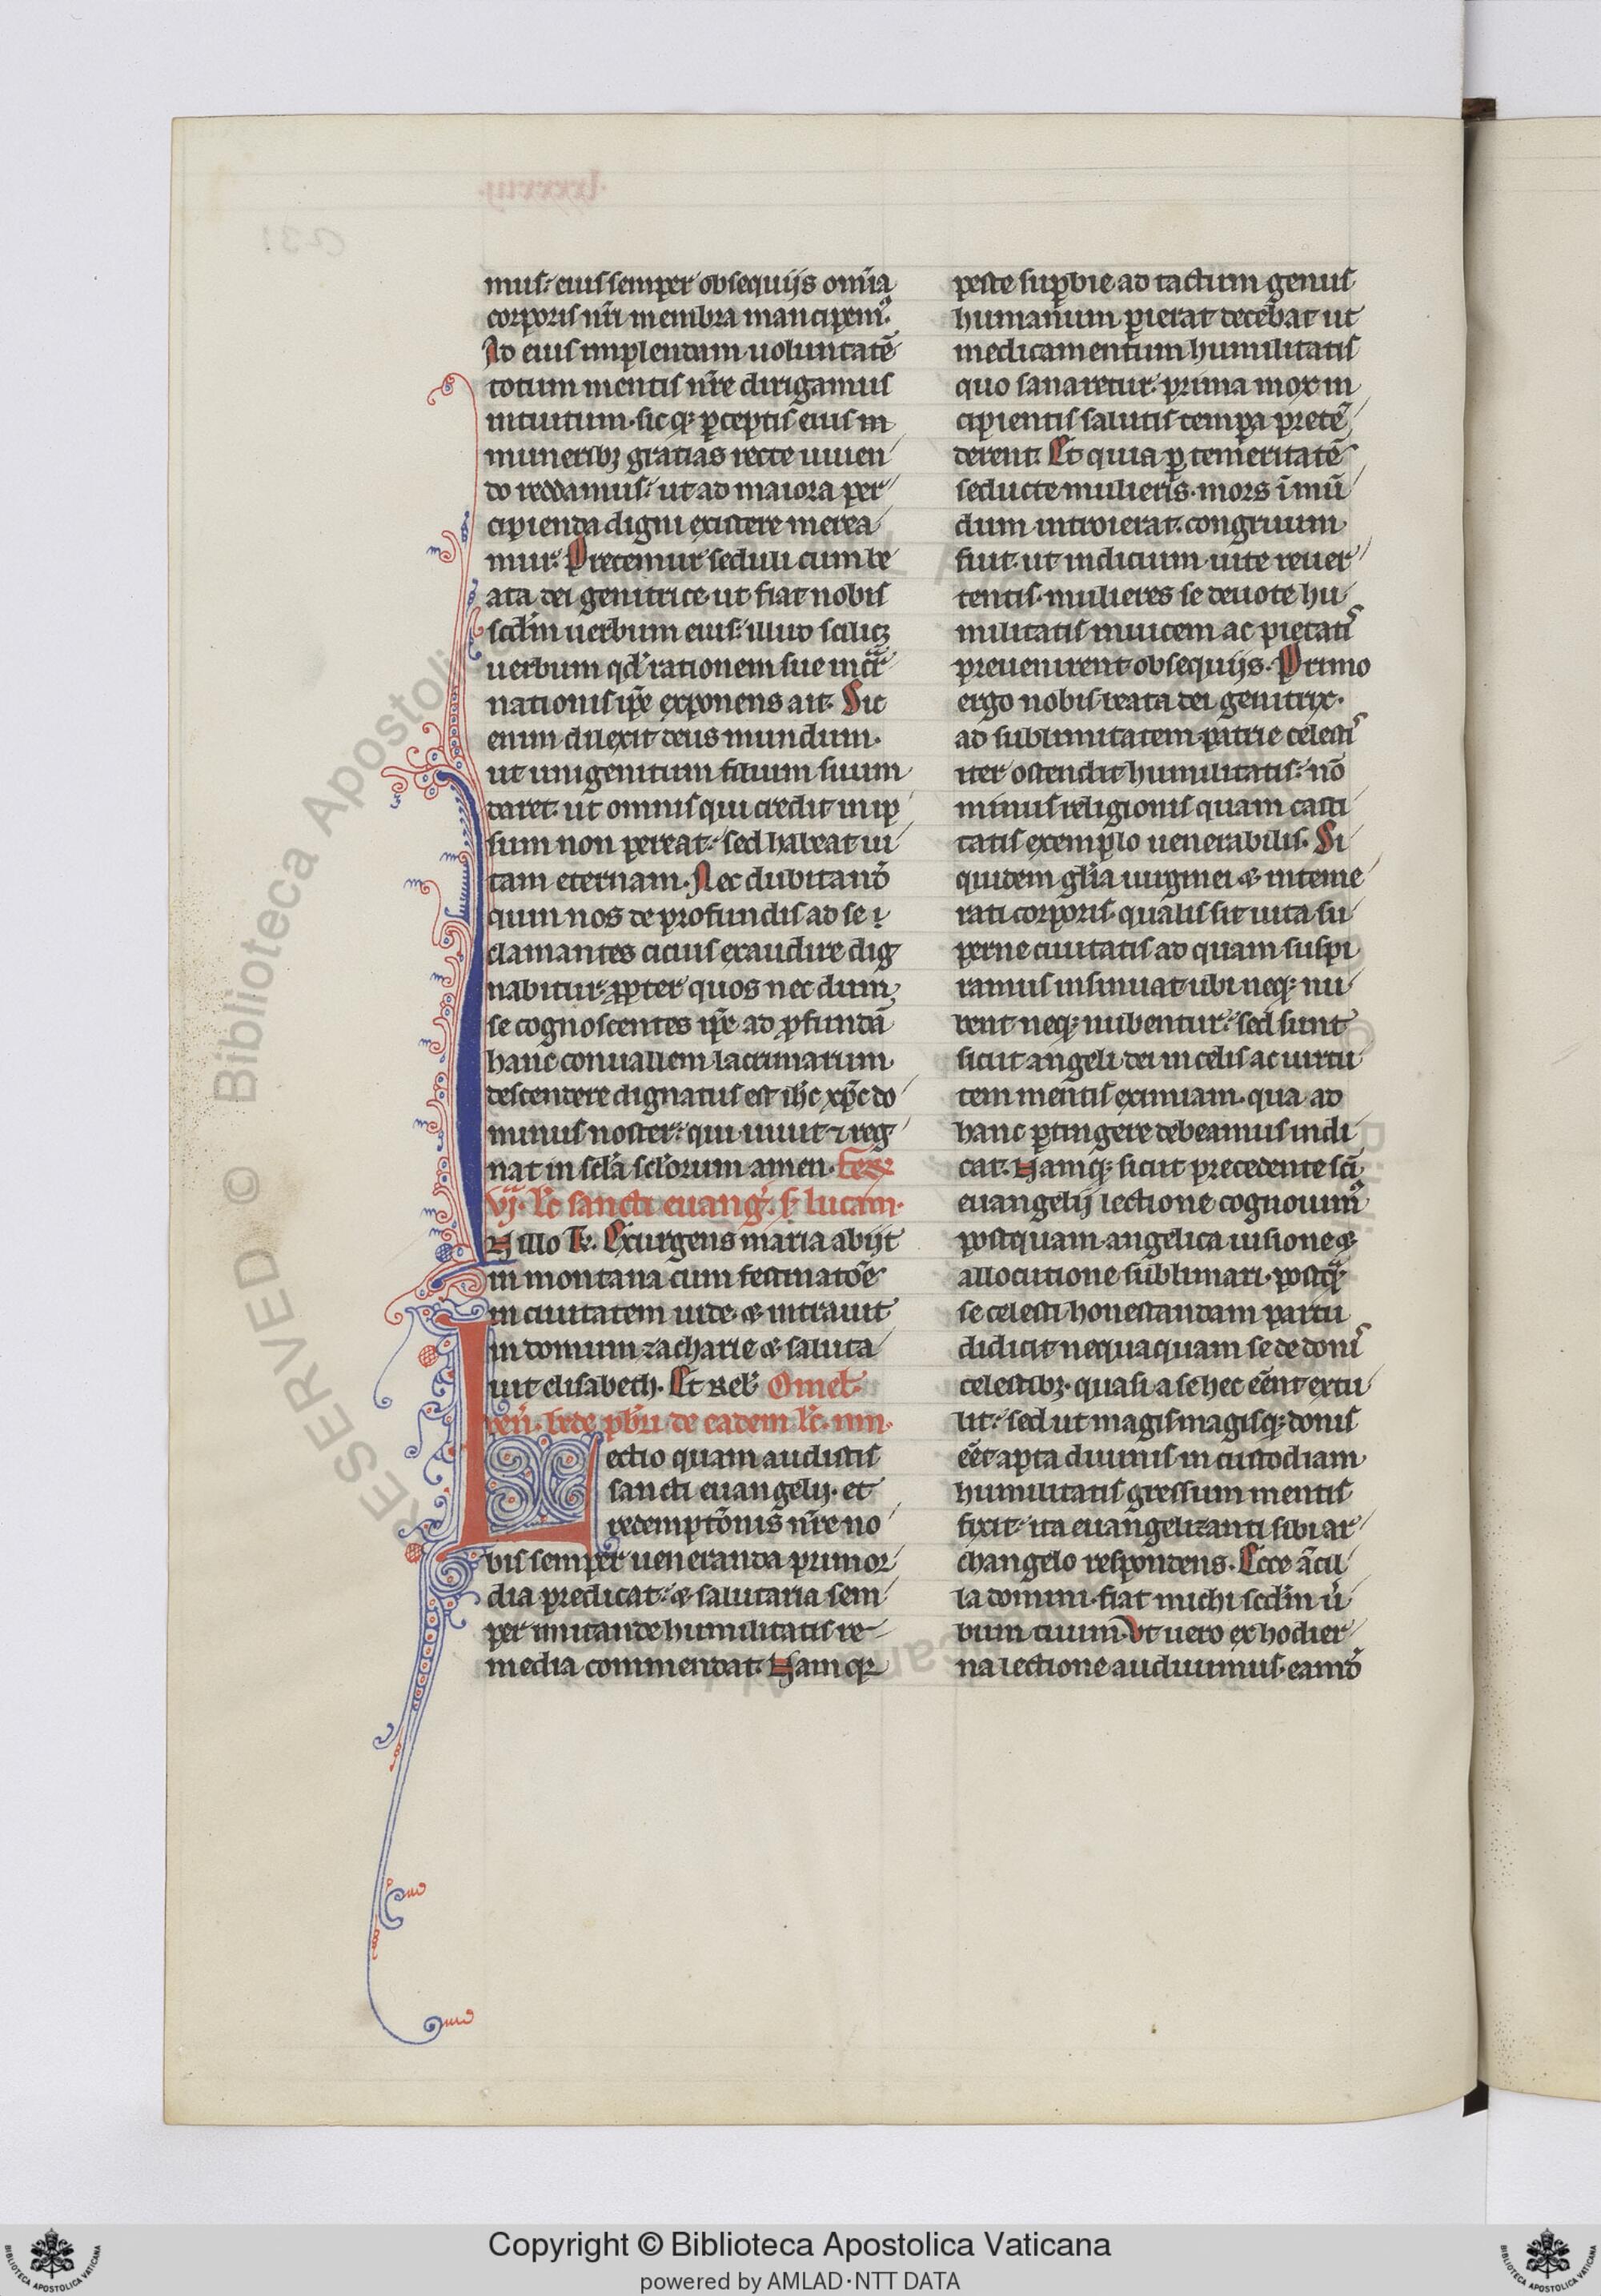 mus· eius semper obsequijs om̄ia
corporis nr̄i membra mancipem᷒.
Ad eius implendam uoluntatē
totum mentis nr̄e dirigamus
intuitum· sicq; ꝑceptis eius in
munerib; gratias recte uiuen
do reddamus· ut ad maiora per
cipienda digni existere merea
mur. Precemur seduli cum be
ata dei genitrice ut fiat nobis
scd̄m uerbum eius· illud scilicꝫ
uerbum qd̄ rationem sue incar
nationis ip̄e exponens ait. Sic
enim dilexit deus mundum·
ut unigenitum filium suum
daret· ut omnis qui credit in ip
sum non pereat· sed habeat ui
tam eternam. Nec dubitand̄
quin nos de profundis ad se
clamantes cicius exaudire dig
nabitur· ꝓpter quos nec dum
se cognoscentes ip̄e ad ꝓfundā
hanc conuallem lacrimarum
descendere dignatus est ih̄c xp̄c do
minus noster· qui uiuit ⁊ reg
nat in scl̄a scl̄orum amen. Fer̄
vj. Lc̄ sancti euang̃. s̄ lucam.
N illo t̄. Exurgens maria abijt
in montana cum festinatōe
in ciuitatem iude· & intrauit
in domum zacharie & saluta
uit elisabeth. Et rel̄. Omel̄.
uen̄. bede p̄bri de eadem lc̄. im.
Lectio quam audistis
sancti euangelij· et
redemptōnis nr̄e no
bis semper ueneranda primor
dia predicat· & salutaria sem
per imitande humilitatis re
media commendat. Namq;
peste suꝑbie ad tactum genus
humanum ꝑierat decebat ut
medicamentum humilitatis
quo sanaretur· prima mox in
cipientis salutis tempa pretē
derent. Et quia ꝑ temeritatē
seducte mulieris· mors ī mū
dum introierat· congruum
fuit· ut indicium uite reuer
tentis· mulieres se deuote hu
militatis inuicem ac pietatis
preuenirent obsequijs. Primo
ergo nobis beata dei genitrix·
ad sublimitatem patrie celestis
iter ostendit humilitatis· nō
minus religionis quam casti
tatis exemplo uenerabilis. Si
quidem glīa uirginei & inteme
rati corporis· qualis sit uita su
perne ciuitatis ad quam suspi
ramus insinuat· ubi neq; nu
bent neq; nubentur· sed sunt
sicut angeli dei in celis ac uirtu
tem mentis eximiam· qua ad
hanc ꝑtingere debeamus indi
cat. Namq; sicut precedente scī
euangelij lectione cognouim᷒
postquam angelica uisione &
allocutione sublimari· postq̄
se celesti honestandam partu
didicit nequaquam se de donis
celestib; quasi a se hec eēnt extu
lit· sed ut magis magisq; donis
eēt apta diuinis in custodiam
humilitatis gressum mentis
fixit· ita euangelizanti sibi ar
changelo respondens. Ecce ācil
la domini· fiat michi scd̄m ū
bum tuum. Vt uero ex hodier
na lectione audiuimus· eamd̄
Copyright © Biblioteca Apostolica Vaticana
powered by AMLAD·NTT DATA